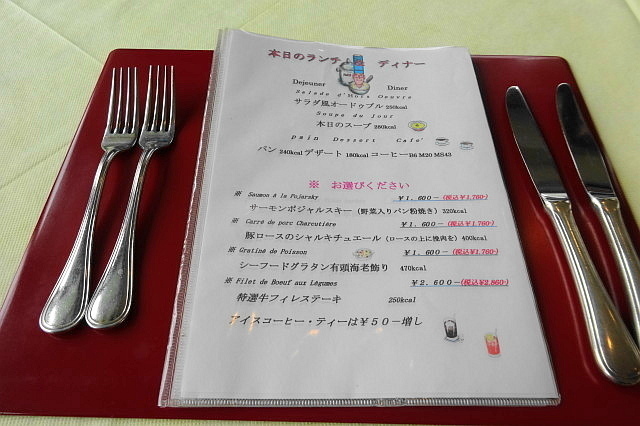 本日のランチ ディナー
Dejeuner Diner
Salade d'Hors Oeuvre
サラダ風オードゥブル 250kcal
Soupe du jour
本日のスープ 280kcal
pain Dessert Cafe'
パン 240kcal デザート 180kcal コーヒー B6 M20 MS43
※ お選びください
※ Saumon à la Pojarsky ￥1．600－(税込￥1,760-)
サーモンポジャルスキー（野菜入りパン粉焼き）320kcal
※ Carré de porc Charcutière ￥1．600－(税込￥1,760-)
豚ロースのシャルキチュエール（ロースの上に挽肉を）400kcal
※ Gratiné de Poisson ￥1．600－(税込￥1,760-)
シーフードグラタン有頭海老飾り 470kcal
※ Filet de Boeuf aux Légumes ￥2．600－(税込¥2,860-)
特選牛フィレステーキ 250kcal
アイスコーヒー・ティーは￥50－増し